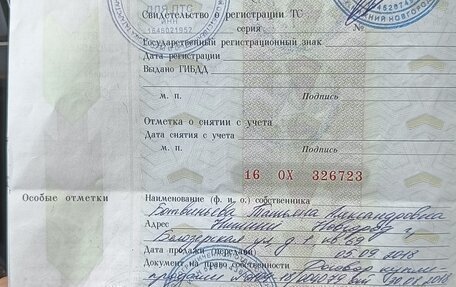 ДЛЯ ПТС
ИНН
1646021952
Свидетельство о регистрации ТС
серия №
НИЖНИЙ НОВГОРОД
Государственный регистрационный знак
Дата регистрации
Выдано ГИБДД
м. п. Подпись
Отметка о снятии с учета
Дата снятия с учета
м. п. Подпись
16 ОХ 326723
Особые отметки
Наименование (ф. и. о.) собственника
Татьяна Александровна
Адрес Нижний Новгород г
ул д. 1, кв. 69
Дата продажи (передачи) 05.09.2018
Документ на право собственности Договор купли-
продажи от 30.08.2018